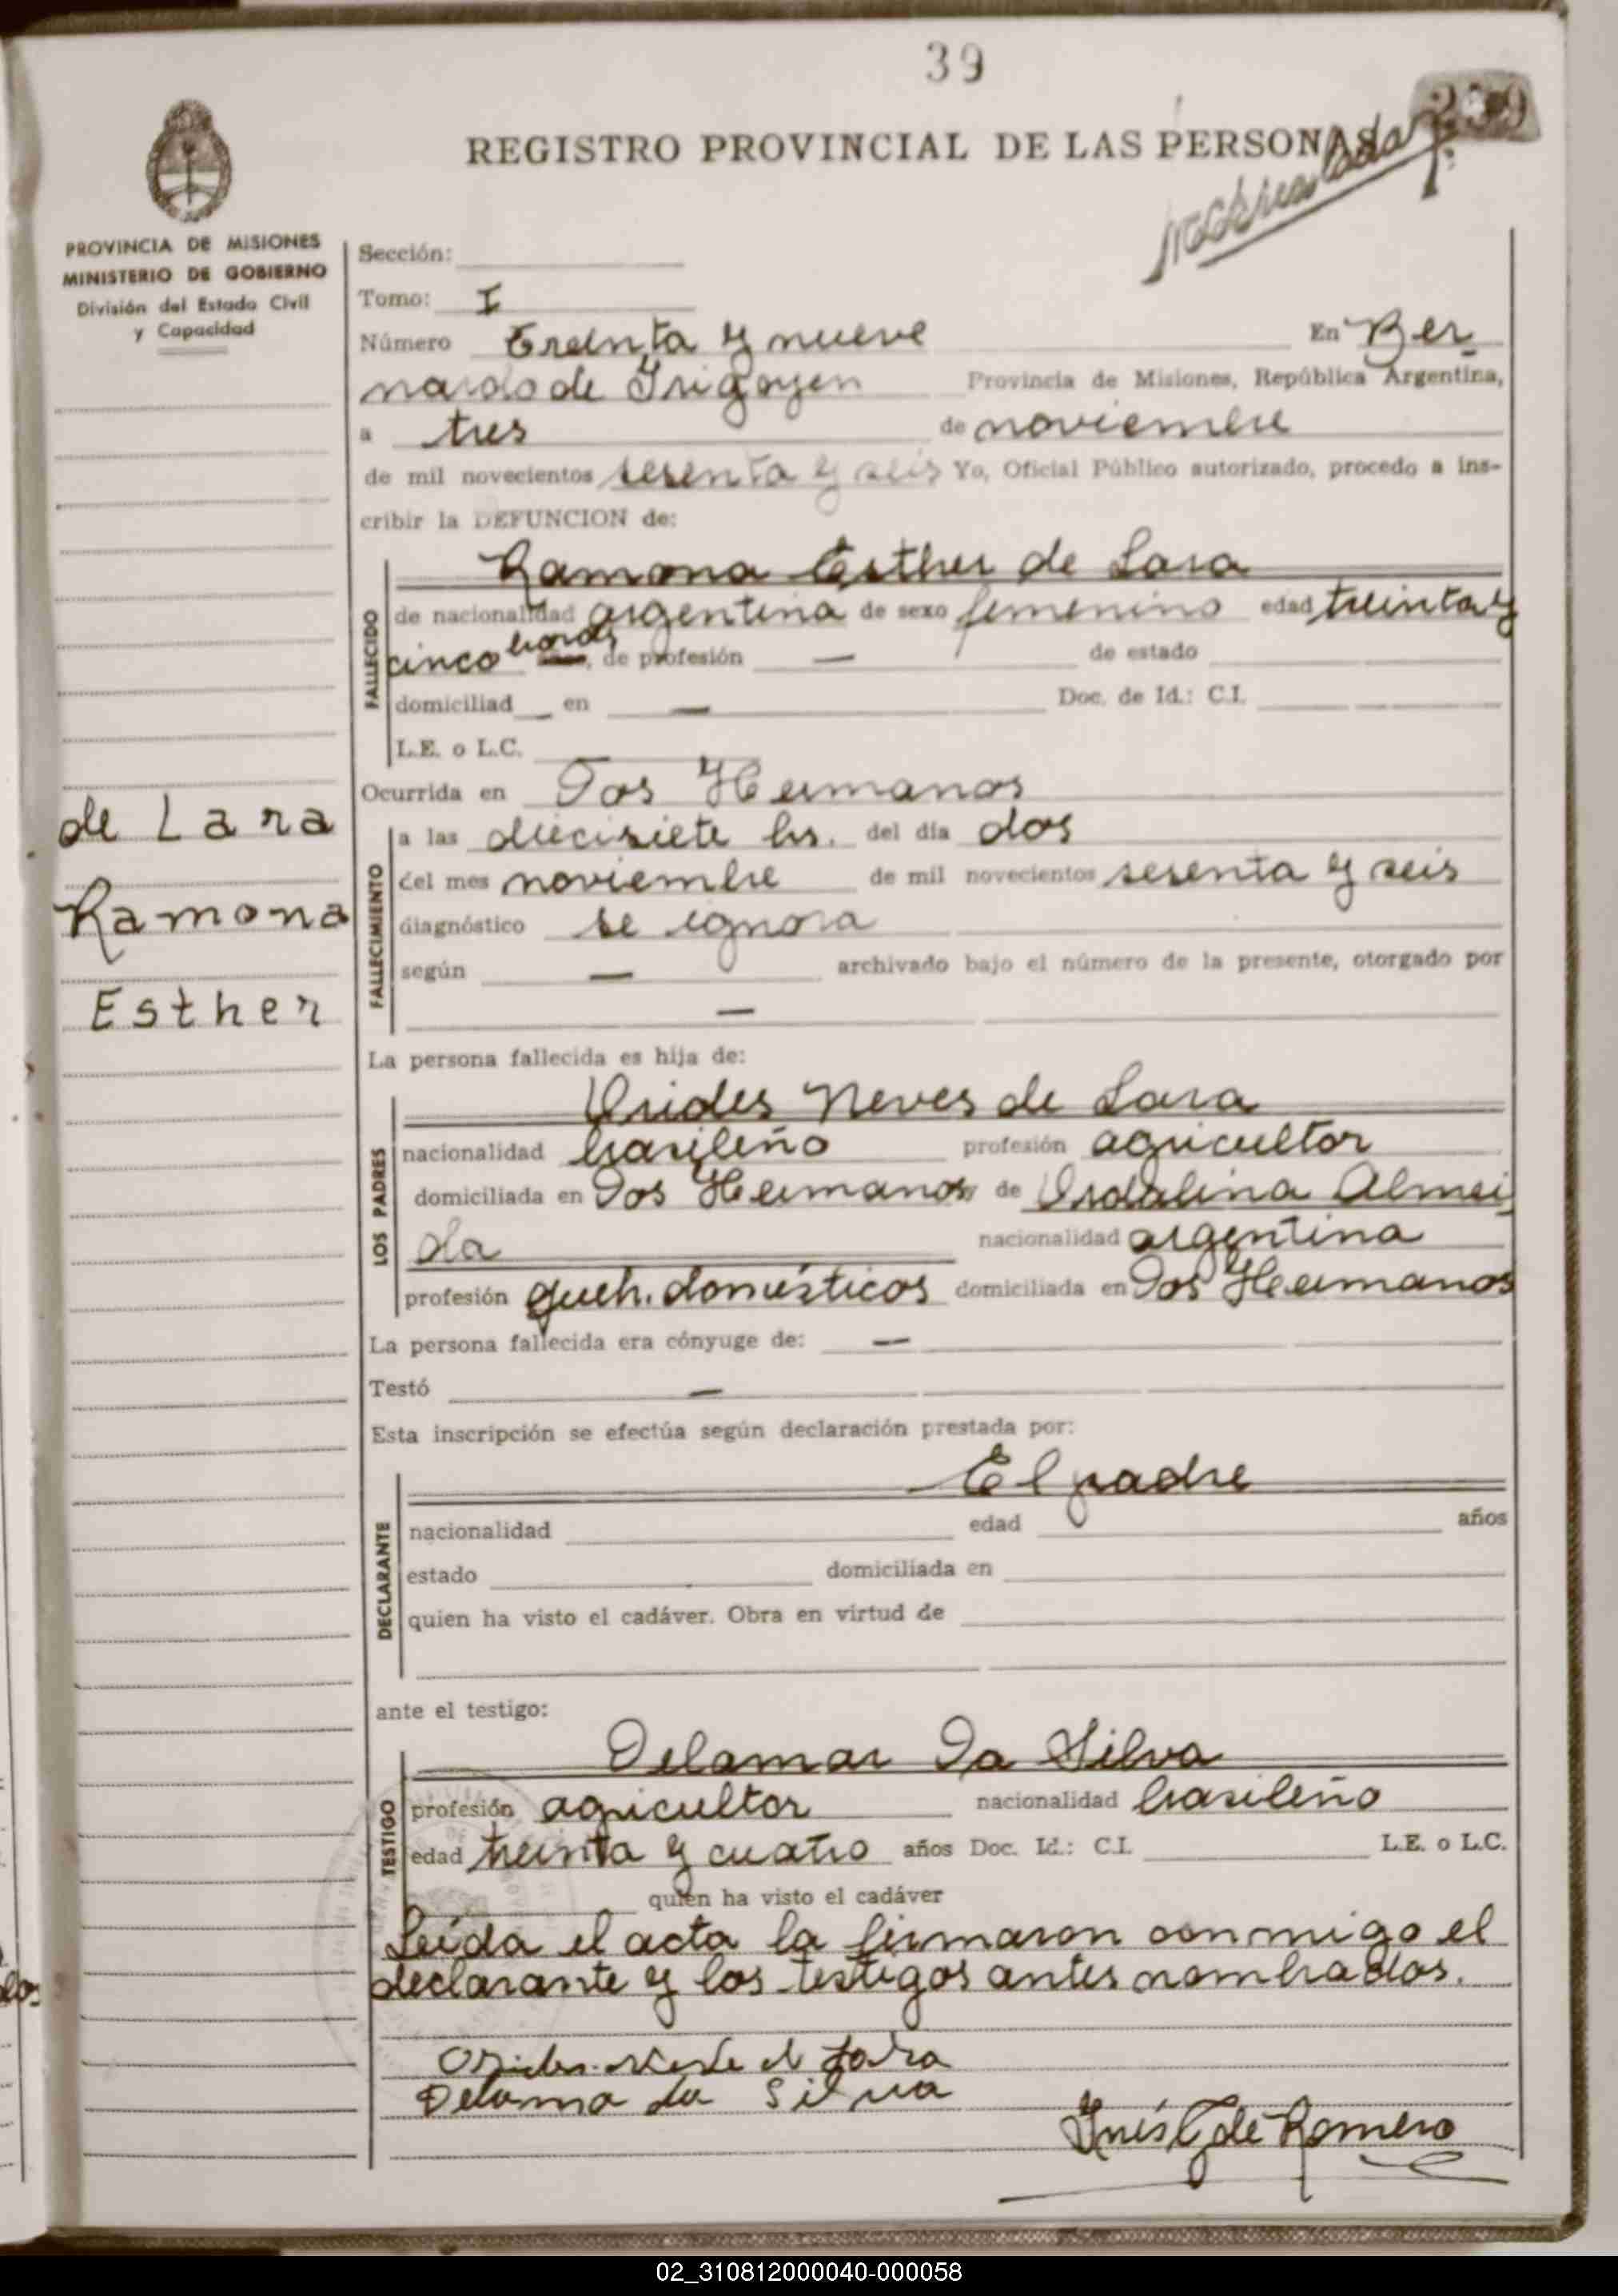 39
REGISTRO PROVINCIAL DE LAS PERSONAS
PROVINCIA DE MISIONES
MINISTERIO DE GOBIERNO
División del Estado Civil
y Capacidad
Sección:
Tomo: I
Número Treinta y nueve En Ber
nardo de Irigoyen Provincia de Misiones, República Argentina,
a tres de noviembre
de mil novecientos sesenta y seis Yo, Oficial Público autorizado, procedo a ins-
cribir la DEFUNCION de:
Ramona Esther de Lara
FALLECIDO
de nacionalidad argentina de sexo femenino edad treinta y
cinco horas años, de profesión — de estado
domiciliad en — Doc. de Id.: C.I.
L.E. o L.C.
Ocurrida en Dos Hermanos
de Lara
Ramona
Esther
FALLECIMIENTO
a las diecisiete hs. del día dos
del mes noviembre de mil novecientos sesenta y seis
diagnóstico se ignora
según — archivado bajo el número de la presente, otorgado por
—
La persona fallecida es hija de:
Orides Neves de Lara
LOS PADRES
nacionalidad brasileño profesión agricultor
domiciliada en Dos Hermanos de Ordalina Almei
da nacionalidad argentina
profesión queh. domésticos domiciliada en Dos Hermanos
La persona fallecida era cónyuge de: —
Testó —
Esta inscripción se efectúa según declaración prestada por:
El padre
DECLARANTE
nacionalidad edad años
estado domiciliada en
quien ha visto el cadáver. Obra en virtud de
ante el testigo:
Delamar Da Silva
TESTIGO
profesión agricultor nacionalidad brasileño
edad treinta y cuatro años Doc. Id.: C.I. L.E. o L.C.
quien ha visto el cadáver
Leída el acta la firmaron conmigo el
declarante y los testigos antes nombrados.
Lara
Delama da Silva
Inés de Romero
02_310812000040-000058